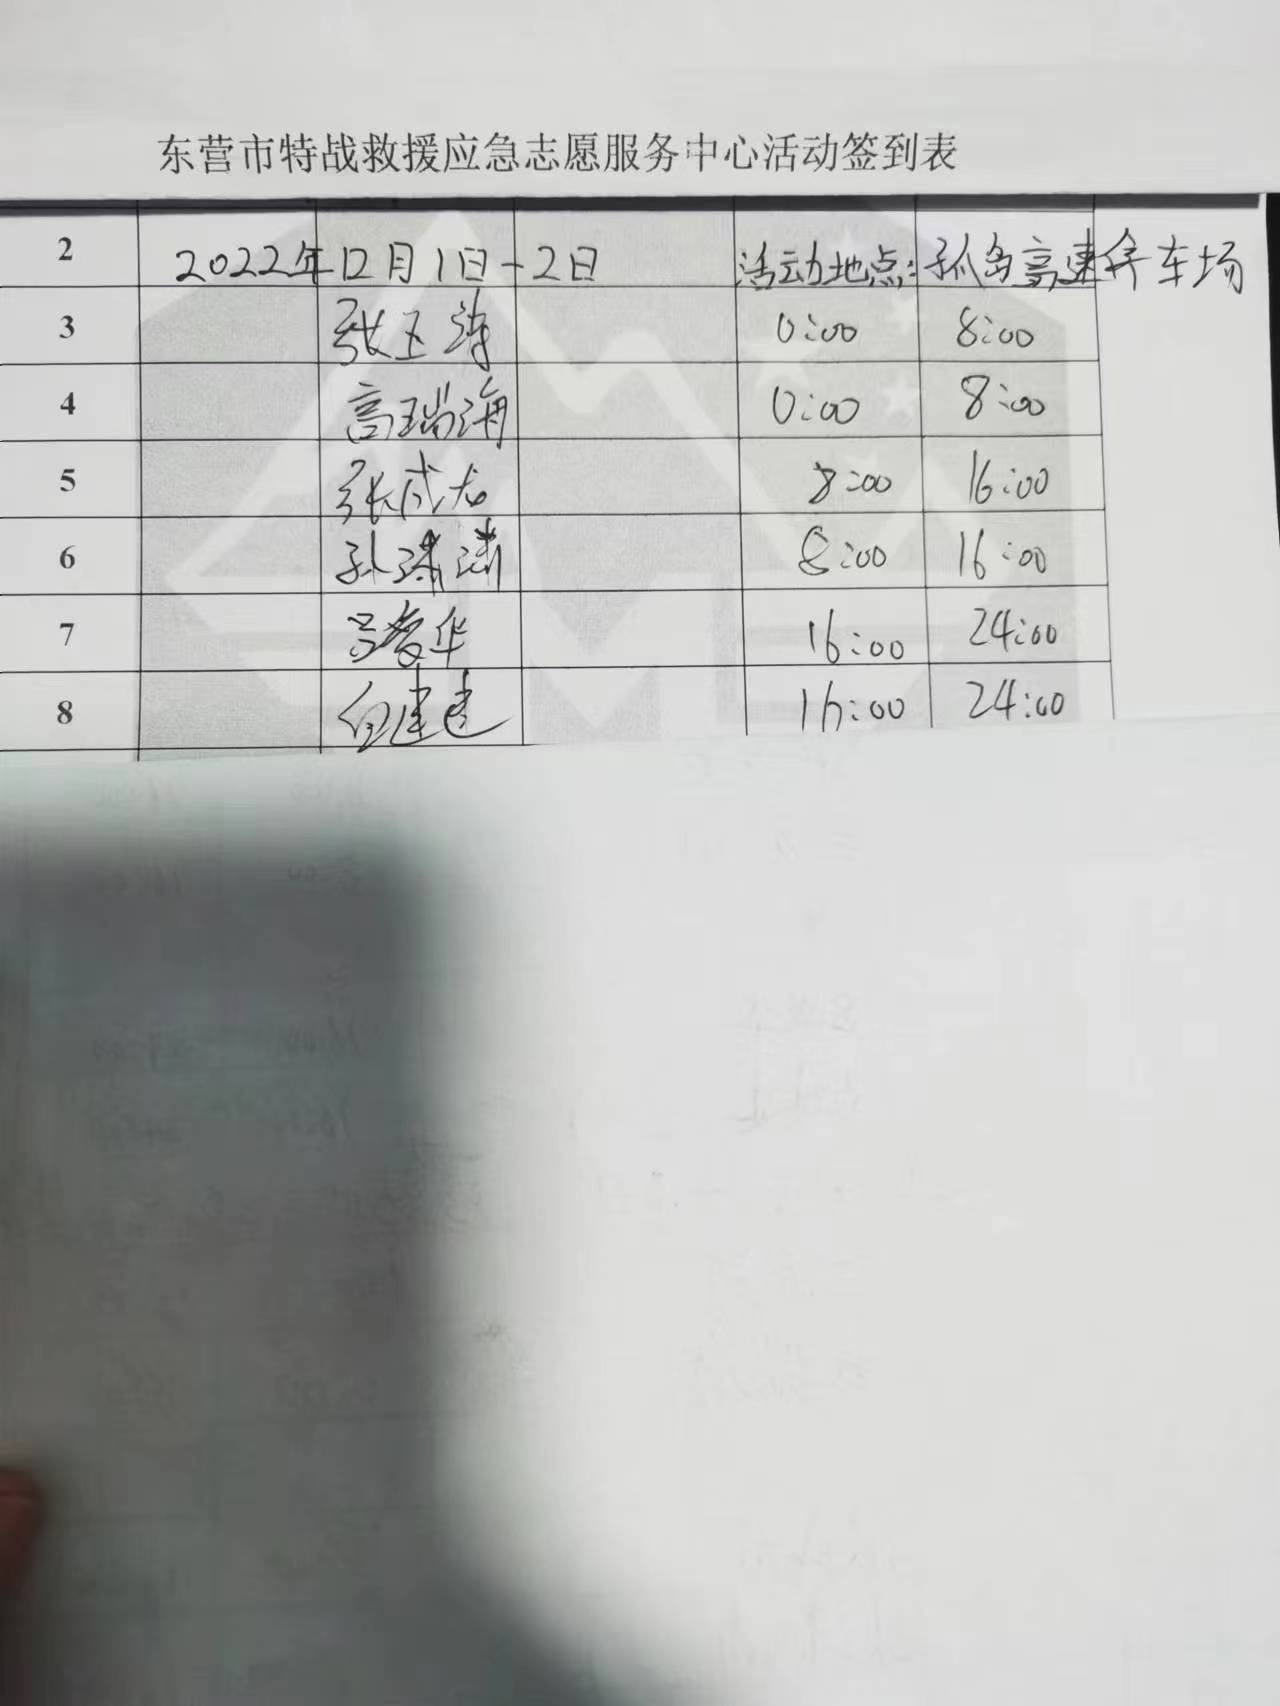 东营市特战救援应急志愿服务中心活动签到表
2 2022年12月1日-2日 活动地点:孤岛高速停车场
3 张玉涛 0:00 8:00
4 高瑞海 0:00 8:00
5 张成龙 8:00 16:00
6 孙 8:00 16:00
7 华 16:00 24:00
8 16:00 24:00